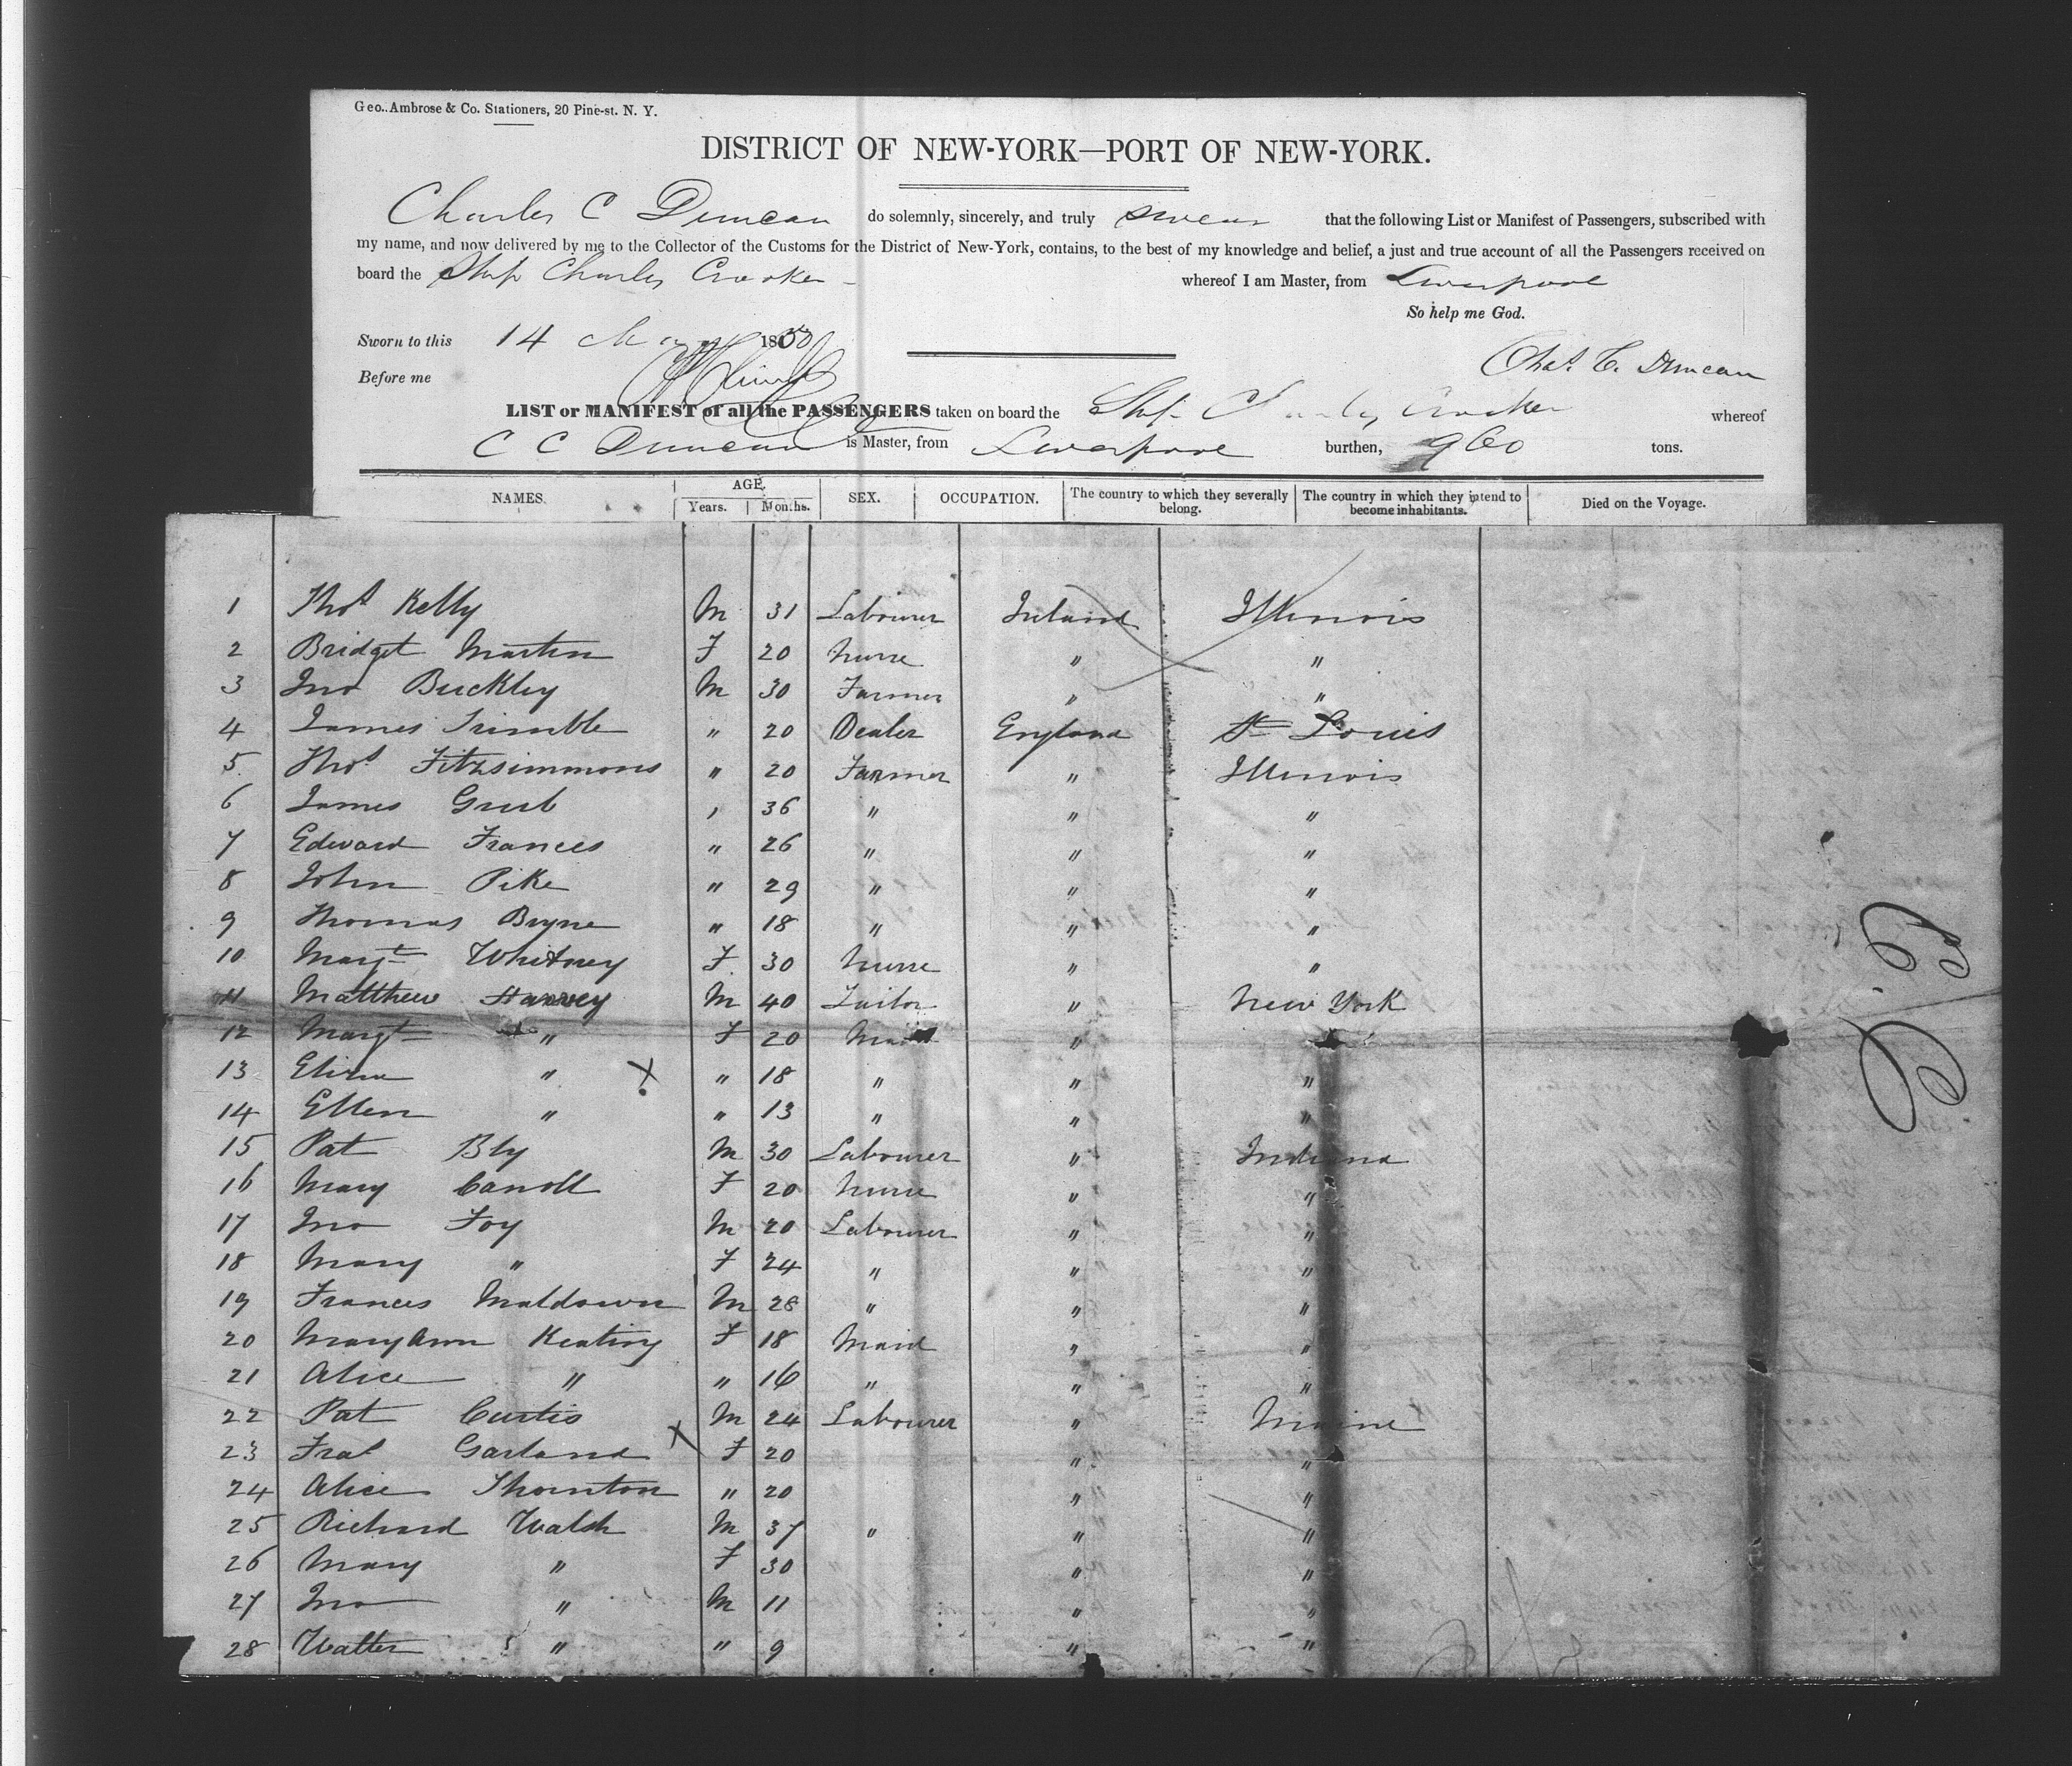 Geo. Ambrose & Co. Stationers, 20 Pine-st. N. Y.
DISTRICT OF NEW-YORK—PORT OF NEW-YORK.
Charles C Duncan do solemnly, sincerely, and truly swear that the following List or Manifest of Passengers, subscribed with
my name, and now delivered by me to the Collector of the Customs for the District of New-York, contains, to the best of my knowledge and belief, a just and true account of all the Passengers received on
board the Ship Charles Crooker whereof I am Master, from Liverpool
So help me God.
Sworn to this 14 May 1850
Chas. C. Duncan
Before me
LIST or MANIFEST of all the PASSENGERS taken on board the Ship Charles Crooker whereof
C C Duncan is Master, from Liverpool burthen, 960 tons.
NAMES. AGE. Years. Months. SEX. OCCUPATION. The country to which they severally belong. The country in which they intend to become inhabitants. Died on the Voyage.
1 Thos Kelly M 31 Labourer Ireland Illinois
2 Bridget Martin F 20 Nurse " "
3 Jno Buckley M 30 Farmer " "
4 James Trimble " 20 Dealer England St Louis
5 Thos Fitzsimmons " 20 Farmer " Illinois
6 James Grub " 36 " " "
7 Edward Frances " 26 " " "
8 John Pike " 29 " " "
9 Thomas Bryne " 18 " " "
10 Margt Whitney F. 30 Nurse " "
11 Matthew Harvey M 40 Tailor " New York
12 Margt " F 20 Maid " "
13 Eliza " X " 18 " " "
14 Ellen " " 13 " " "
15 Pat Bly M 30 Labourer " Indiana
16 Mary Caroll F 20 Nurse " "
17 Jno Foy M 20 Labourer " "
18 Mary " F 24 " " "
19 Frances Muldown M 28 " " "
20 Mary Ann Keating F 18 Maid " "
21 Alice " " 16 " " "
22 Pat Curtis M 24 Labourer " Maine
23 Fras Garland X F 20 " "
24 Alice Thornton " 20 " "
25 Richard Walsh M 37 " " "
26 Mary " F 30 " "
27 Jno " M 11 " "
28 Walter " " 9 " "